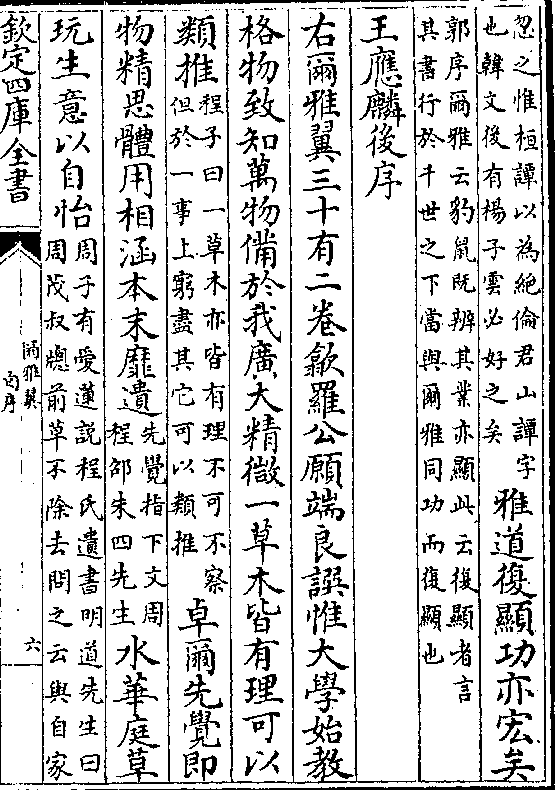 忽之惟桓譚以為絶倫君山譚字
也韓文後有楊子雲必好之矣
雅道復顯功亦宏矣
郭序爾雅云豹鼠既辨其業亦顯此云復顯者言
其書行於千世之下當與爾雅同功而復顯也
王應麟後序
右爾雅翼三十有二卷歙羅公願端良譔惟大學始教
格物致知萬物備於我廣大精微一草木皆有理可以
類推
程子曰一草木亦皆有理不可不察
但於一事上窮盡其它可以類推
卓爾先覺即
物精思體用相涵本末靡遺
先覺指下文周
程邵朱四先生
水華庭草
玩生意以自怡
周子有愛蓮説程氏遺書明道先生曰
周茂叔牕前草不除去問之云與自家
欽定四庫全書
爾雅翼
後序
六